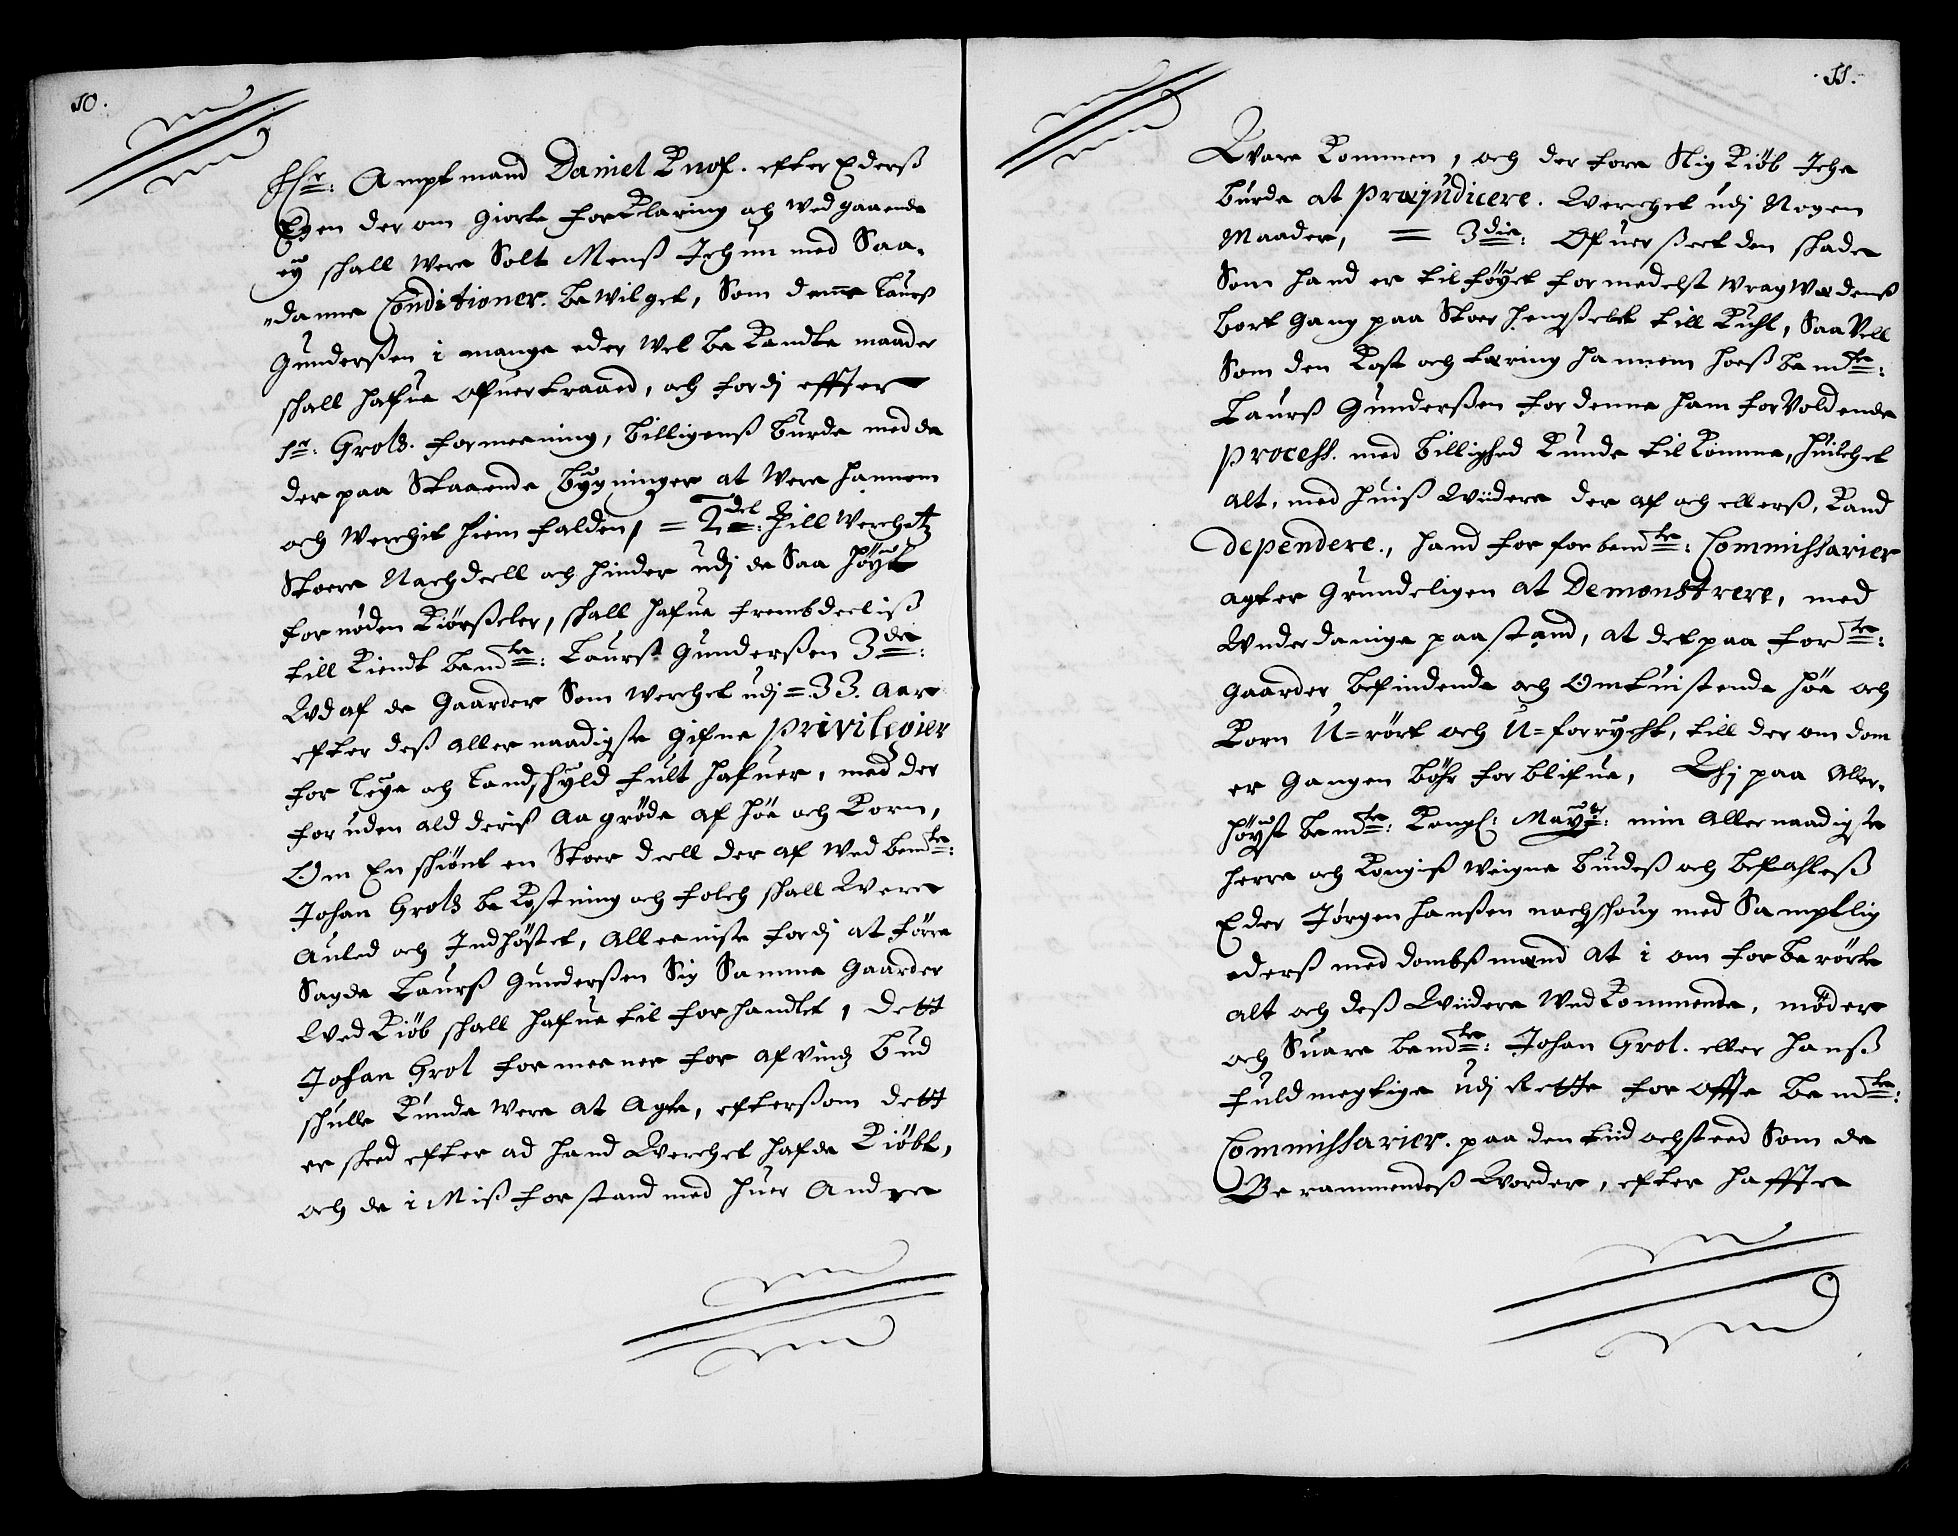 10.
Hr: Amptmand Daniel Knof. efter Ederß
Egen der om giorte forklaring och wed gaaende
ey skall were Solt Menß Ichun med Saa-
danne Conditioner. bewilget, Som denne Laurß
Gunderßen i mange eder wel bekandte maader
skall hafue ofuertraaed, och fordj effter
Sr: Grots. formeening, billigenß burde med de
der paa Staaende bygninger at were hannem
och werchit hiem falden, = 2del: Till werchetz
Stoere Nachdeell och hinder udj de Saa høyt
fornøden Kiørßeler, skall hafue frembdeeliß
till Kiendt bemte: Laurß Gunderßen 3de:
Ud af de Gaarder Som werchet udj = 33. Aar
efter deß aller naadigste gifne privilegier
for Leye och Landskyld fult hafuer, med der
foruden ald deriß Aagrøde af høe och Korn,
Om En skiønt en Stoer deell der af wed bemte:
Johan Grots bekostning och folch skall were
Auled och Indhøstet, Alleeniste fordj at førre
Sagde Laurß Gunderßen Sig Samme Gaarder
wed Kiøb skall hafue til forhandlet, dett
Johan Grot formeener for afvindz bud
skulle Kunde were at Agte, efterßom dett
er skeed efter ad hand Werchet hafde Kiøbt,
och de i Mißforstand med huer Andre
11.
Ware Kommen, och der fore Slig Kiøb Iche
burde at præjudicere. Werchet udj Nogen
Maader, = 3die: Ofuerßeet den skade
Som hand er tilføyet formedelst wragwedenß
bort gang paa Stoer hengßelet till Kuhl, Saa Vell
Som den Kost och tæring hannem hoeß bemte:
Laurß Gunderßen for denne ham forVoldende
process. med billighed Kunde tilkomme, huilchet
alt, med huiß Widere der af och ellerß, Kand
dependere., hand for forbemte: Commissarier
agter grundeligen at Demonstrere, med
Underdanige paastand, at det paa forte:
gaarder befindende och Omtuistende høe och
Korn U=rørt och U=forrycht, till der om dom
er gangen bør forblifue, Thj paa Aller-
høyst bemte: Kongl: Maytz: min Allernaadigste
herre och Kongiß weigne bindeß och befahleß
Eder Jørgen Hanßen nachskoug med Samptlig
ederß med dombßmænd at i om forberørte
alt och deß Widere wedkommende, møder
och Suare bemte: Johan Grot. eller hanß
fuldmegtige udj Rette for Offte bemte:
Commissarier. paa den tiid och steed Som de
Berammendeß Worder, efter haffte